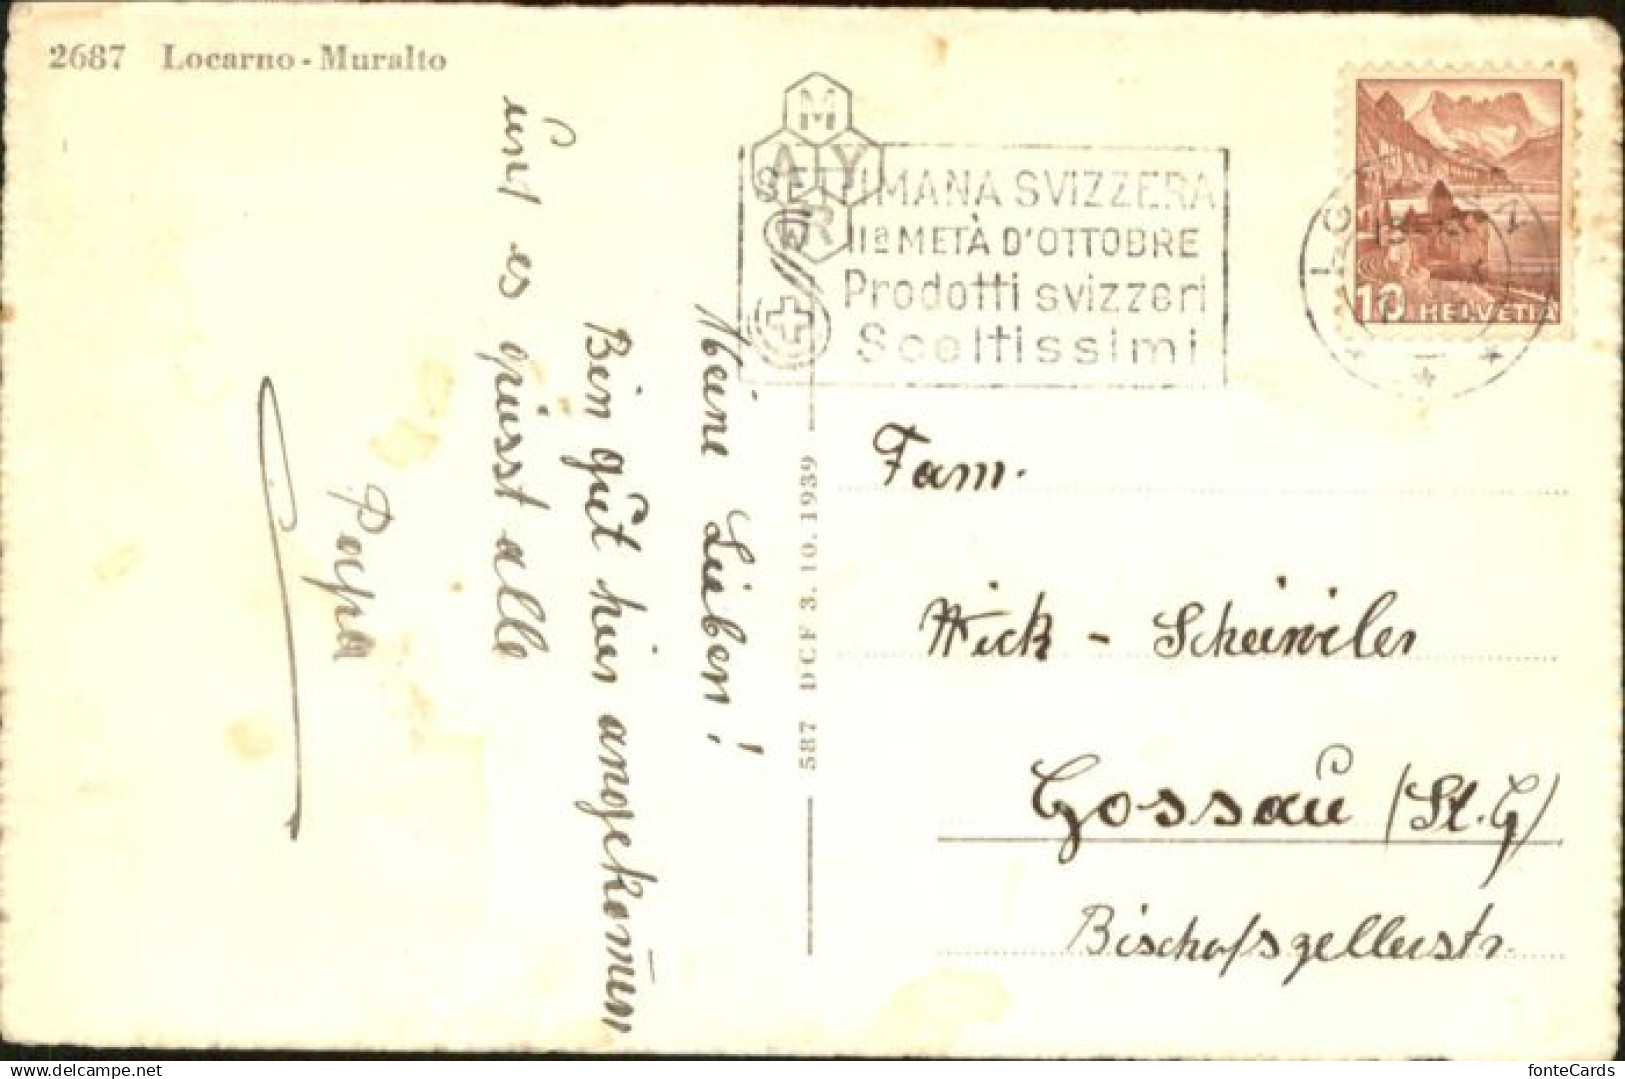 2687 Locarno - Muralto
MAYR
SETTIMANA SVIZZERA
IIª METÀ D'OTTOBRE
Prodotti svizzeri
Sceltissimi
10 HELVETIA
Meine Lieben!
Bin gut hier angekom̅en
und es grüsst alle
Papa
587 DCF 3.10.1939
Fam.
Wick - Scheiwiler
Gossau (St. G)
Bischofszellerstr.
fonteCards